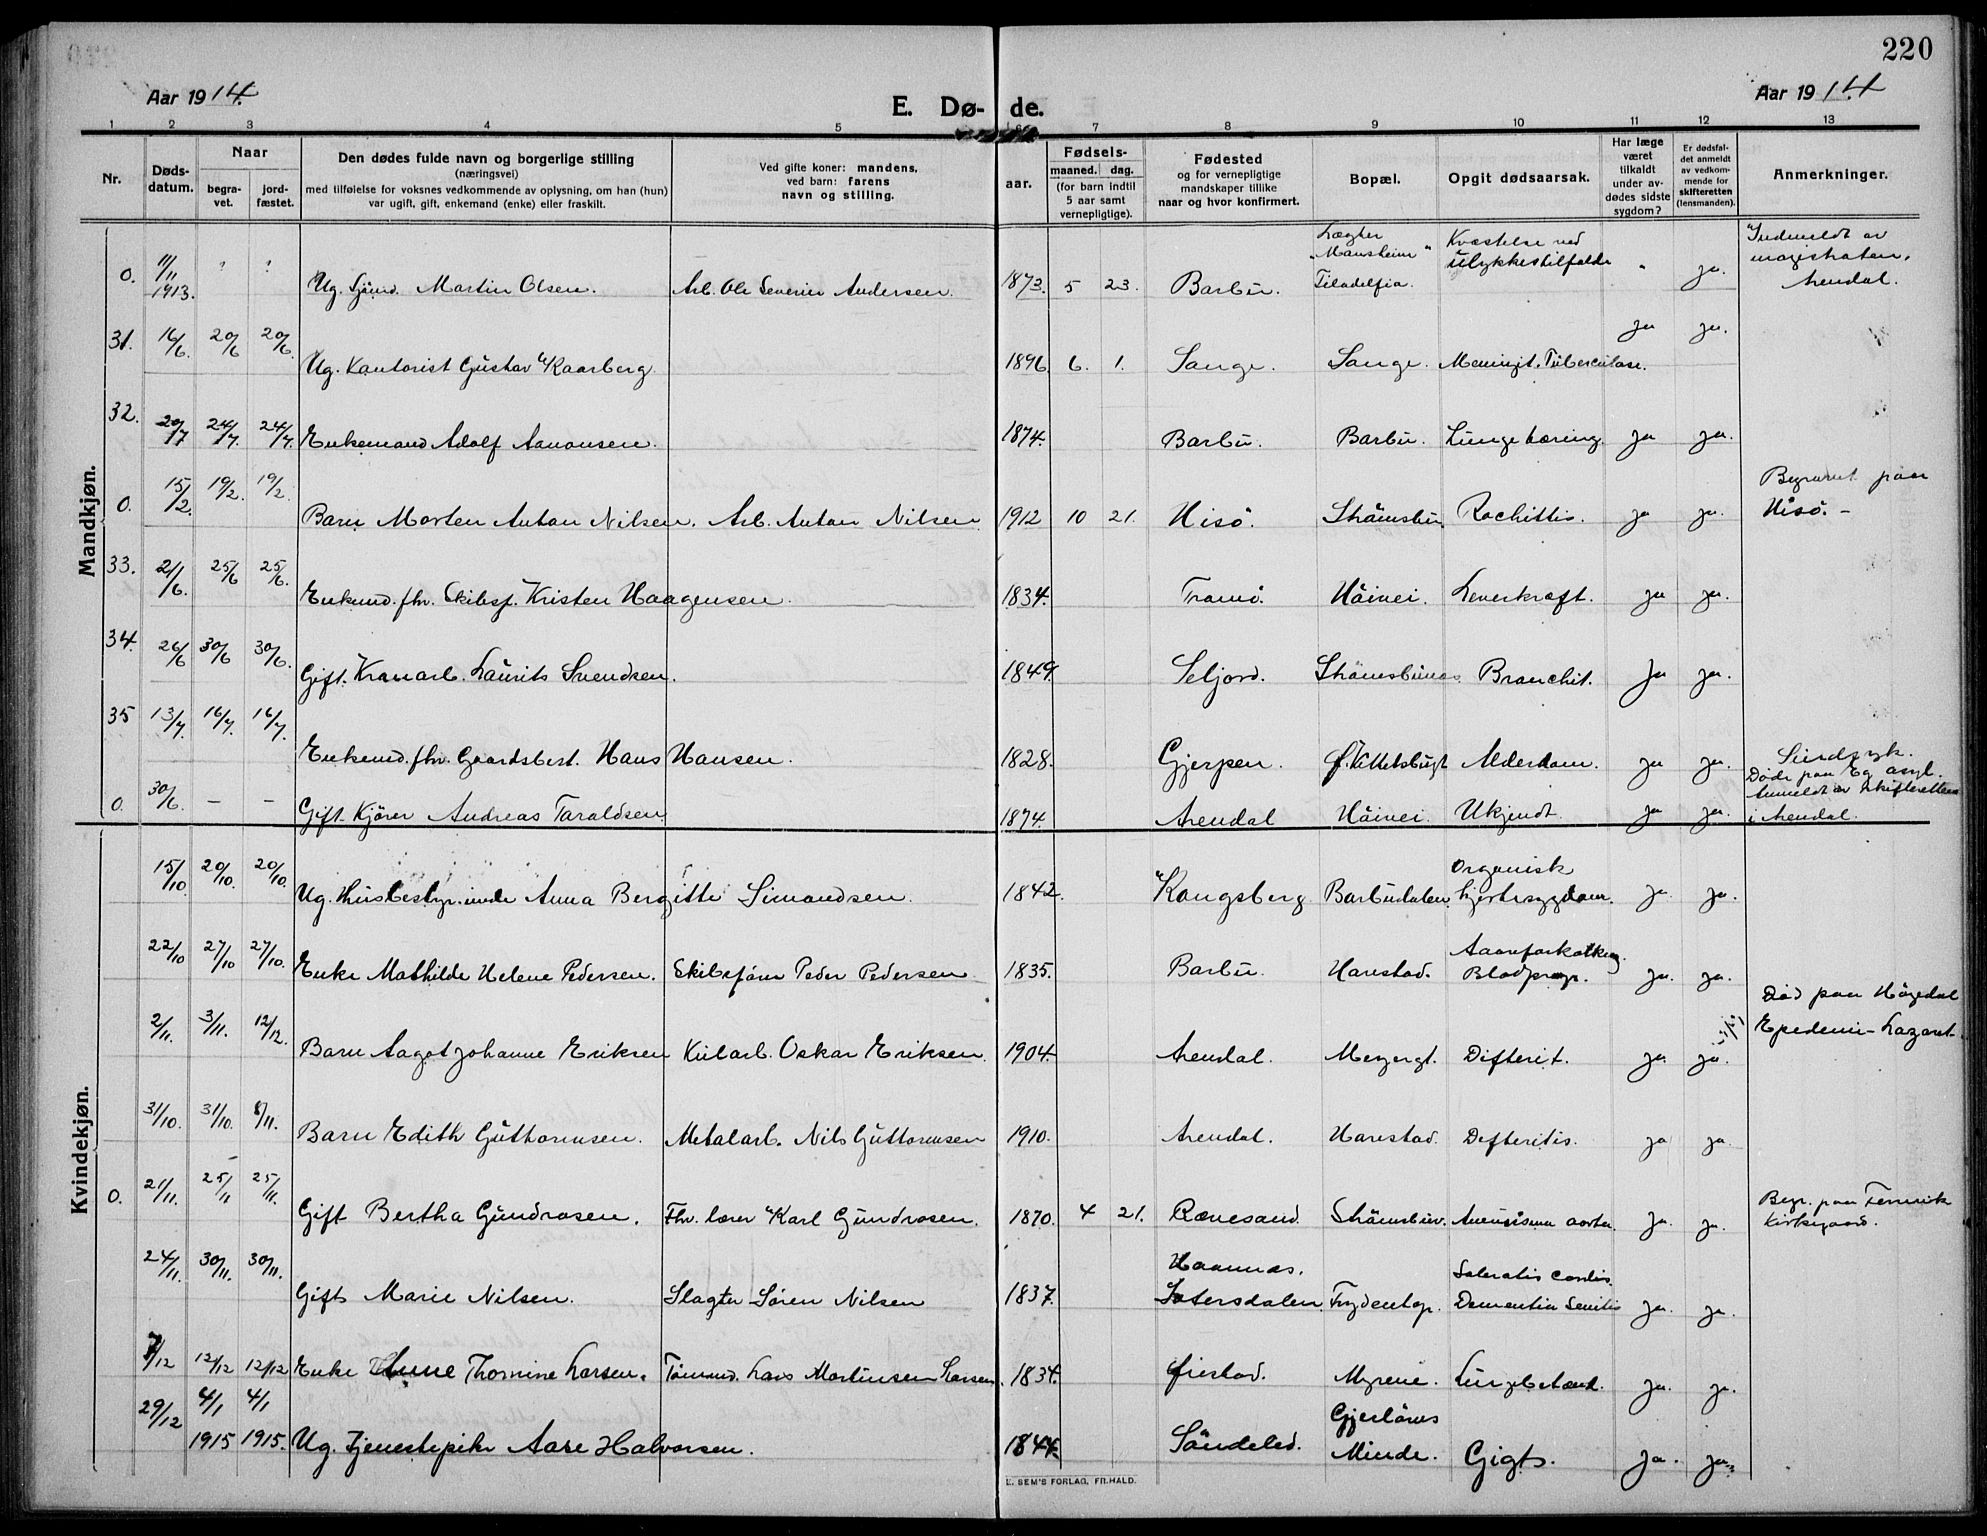 220
Aar 1914.
E. Dø- de.
Aar 1914
1 2 3 4 5 6 7 8 9 10 11 12 13
Nr.
Døds-
datum.
Naar
begra-
vet.
jord-
fæstet.
Den dødes fulde navn og borgerlige stilling
(næringsvei)
med tilføielse for voksnes vedkommende av oplysning, om han (hun)
var ugift, gift, enkemand (enke) eller fraskilt.
Ved gifte koner: mandens,
ved barn: farens
navn og stilling.
aar.
Fødsels-
maaned. dag.
(for barn indtil
5 aar samt
vernepligtige).
Fødested
og for vernepligtige
mandskaper tillike
naar og hvor konfirmert.
Bopæl.
Opgit dødsaarsak.
Har læge
været
tilkaldt
under av-
dødes sidste
sygdom?
Er dødsfal-
det anmeldt
av vedkom-
mende for
skifteretten
(lensmanden).
Anmerkninger.
Mandkjøn.
0. 11/11 1913. ? ? Ug. Sjømd. Martin Olsen. Arb. Ole Severin Andersen. 1873. 5 23. Barbu. Lægter "Mansheim" Filadelfia. Kvæstelse ved ulykkestilfælde " ja. Indmeldt av magistraten, Arendal.
31. 16/6. 20/6 20/6. Ug. Kontorist Gustav Kaarberg 1896 6. 1. Songe. Songe. Meningit. Tuberculose. ja ja.
32. 20/7 24/7. 24/7. Enkemand Adolf Aanonsen. 1874. Barbu. Barbu. Lungetæring. ja ja.
0. 15/2. 19/2. 19/2. Barn Morten Anton Nilsen. Arb. Anton Nilsen 1912 10 21. Hisö. Strömsbu Rachittis. ja ja. Begravet paa Hisö. -
33. 21/6. 25/6 25/6. Enkemd. fhv. Skibsf. Kristen Haagensen. 1834. Tromö. Höivei. Leverkræft. ja ja.
34. 26/6 30/6 30/6. Gift. Kranarb. Laurits Svendsen. 1849 Seljord. Strömsbunes. Bronchit. Ja ja.
35 13/7 16/7. 16/7. Enkemd. fhv. Gaardsbest. Hans Hansen. 1828. Gjerpen. Ø. Kittelsbugt Alderdom. ja ja.
0. 30/6. - - Gift Kjører Andreas Taraldsen 1874. Arendal Höivei. Ukjendt. ja ja. Sindssyk. Døde paa Eg asyl. Anmeldt av skifteretten i Arendal.
Kvindekjøn.
15/10. 20/10. 20/10. Ug. Husbestyrinde Anna Bergitte Simonsen. 1842. Kongsberg Barbudalen Organisk hjertesygdom. ja. ja.
22/10 27/10 27/10. Enke Mathilde Helene Pedersen. Skibsfører Peder Pedersen 1835. Barbu. Harestad. Aareforkalkning. Blodprop. ja. ja.
2/11. 3/11. 12/12. Barn Aagot Johanne Eriksen Kularb. Oskar Eriksen. 1904. Arendal. Meyergt. Difterit. ja. ja. Død paa Högedal Epedemi-Lazaret.
31/10. 31/10. 8/11. Barn Edith Guttormsen. Metalarb. Nils Guttormsen 1910. Arendal. Harestad. Defteritis. ja ja.
0. 21/11. 25/11 25/11. Gift Bertha Gundrosen. Fhv. lærer Karl Gundrosen. 1870. 4 21. Rænesand. Strömsbu. Aneurisma aorta ja. ja. Begr. paa Færvik Kirkegaard.
24/11. 30/11. 30/11. Gift Marie Nilsen. Slagter Sören Nilsen 1837. Hannaas. Sætersdalen Frydentop. cordis. Dementia Senilis ja. ja.
7/12 12/12 12/12 Enke Anne Thomine Larsen. Tömmd. Lars Martinsen Larsen. 1834. Øiestad. Myrene. Lungebetænd. ja. ja.
29/12 4/1 1915 4/1 1915. Ug. Tjenestepike Aase Halvorsen. 1844. Söndeled. Gjerlöws Minde. Gigt. ja. ja.
E. SEM'S FORLAG, FR.HALD.